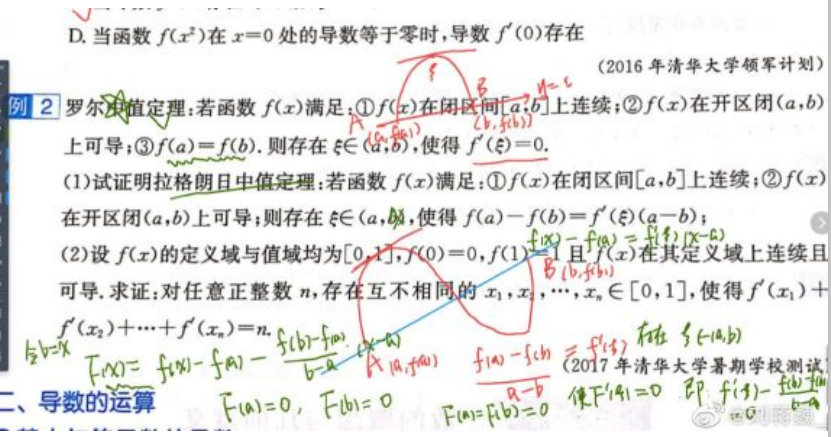 D. 当函数 f(x²)在 x=0 处的导数等于零时,导数 f′(0)存在
(2016 年清华大学领军计划)
例 2 罗尔中值定理:若函数 f(x)满足:①f(x)在闭区间[a,b]上连续;②f(x)在开区闭(a,b)
上可导;③f(a)=f(b). 则存在 ξ∈(a,b),使得 f′(ξ)=0.
ξ
A
B
(a, f(a))
(b, f(b))
(1)试证明拉格朗日中值定理:若函数 f(x)满足:①f(x)在闭区间[a,b]上连续;②f(x)
在开区闭(a,b)上可导;则存在 ξ∈(a,b),使得 f(a)-f(b)=f′(ξ)(a-b);
f(x)-f(a)=f′(ξ)(x-a)
(2)设 f(x)的定义域与值域均为[0,1],f(0)=0,f(1)=1 且 f(x)在其定义域上连续且
B(b,f(b))
可导. 求证:对任意正整数 n,存在互不相同的 x₁,x₂,…,xₙ∈[0,1],使得 f′(x₁)+
f′(x₂)+…+f′(xₙ)=n.
存在 ξ∈(a,b)
令b=x
F(x)=f(x)-f(a)-f(b)-f(a)/b-a (x-a)
A(a,f(a))
f(a)-f(b)/a-b = f′(ξ)
(2017 年清华大学暑期学校测试)
二、导数的运算
F(a)=0, F(b)=0
F(a)=F(b)=0 使F′(ξ)=0 即 f′(ξ)-f(b)-f(a)/b-a
=0